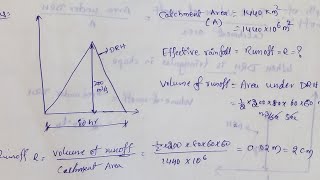 Catchment Area = 1440 Km²
(A) = 1440×10⁶ m²
Effective rainfall = Runoff = R = ?
DRH
200
m³/s
80 hr
Volume of runoff = Area under DRH
= ½ × 200 × 80 × 60 × 60
Runoff R = Volume of runoff / Catchment Area = ½ × 200 × 80 × 60 × 60 / 1440 × 10⁶ = 0.02 m = 2 cm